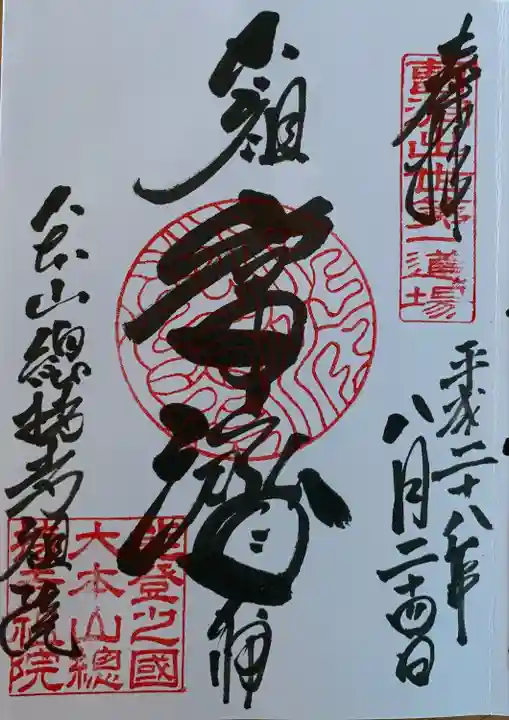 奉拝
曹洞出世第一道場
平成二十八年
八月二十四日
太祖
常済
大本山總持寺祖院
能登之國
大本山總
持寺祖院